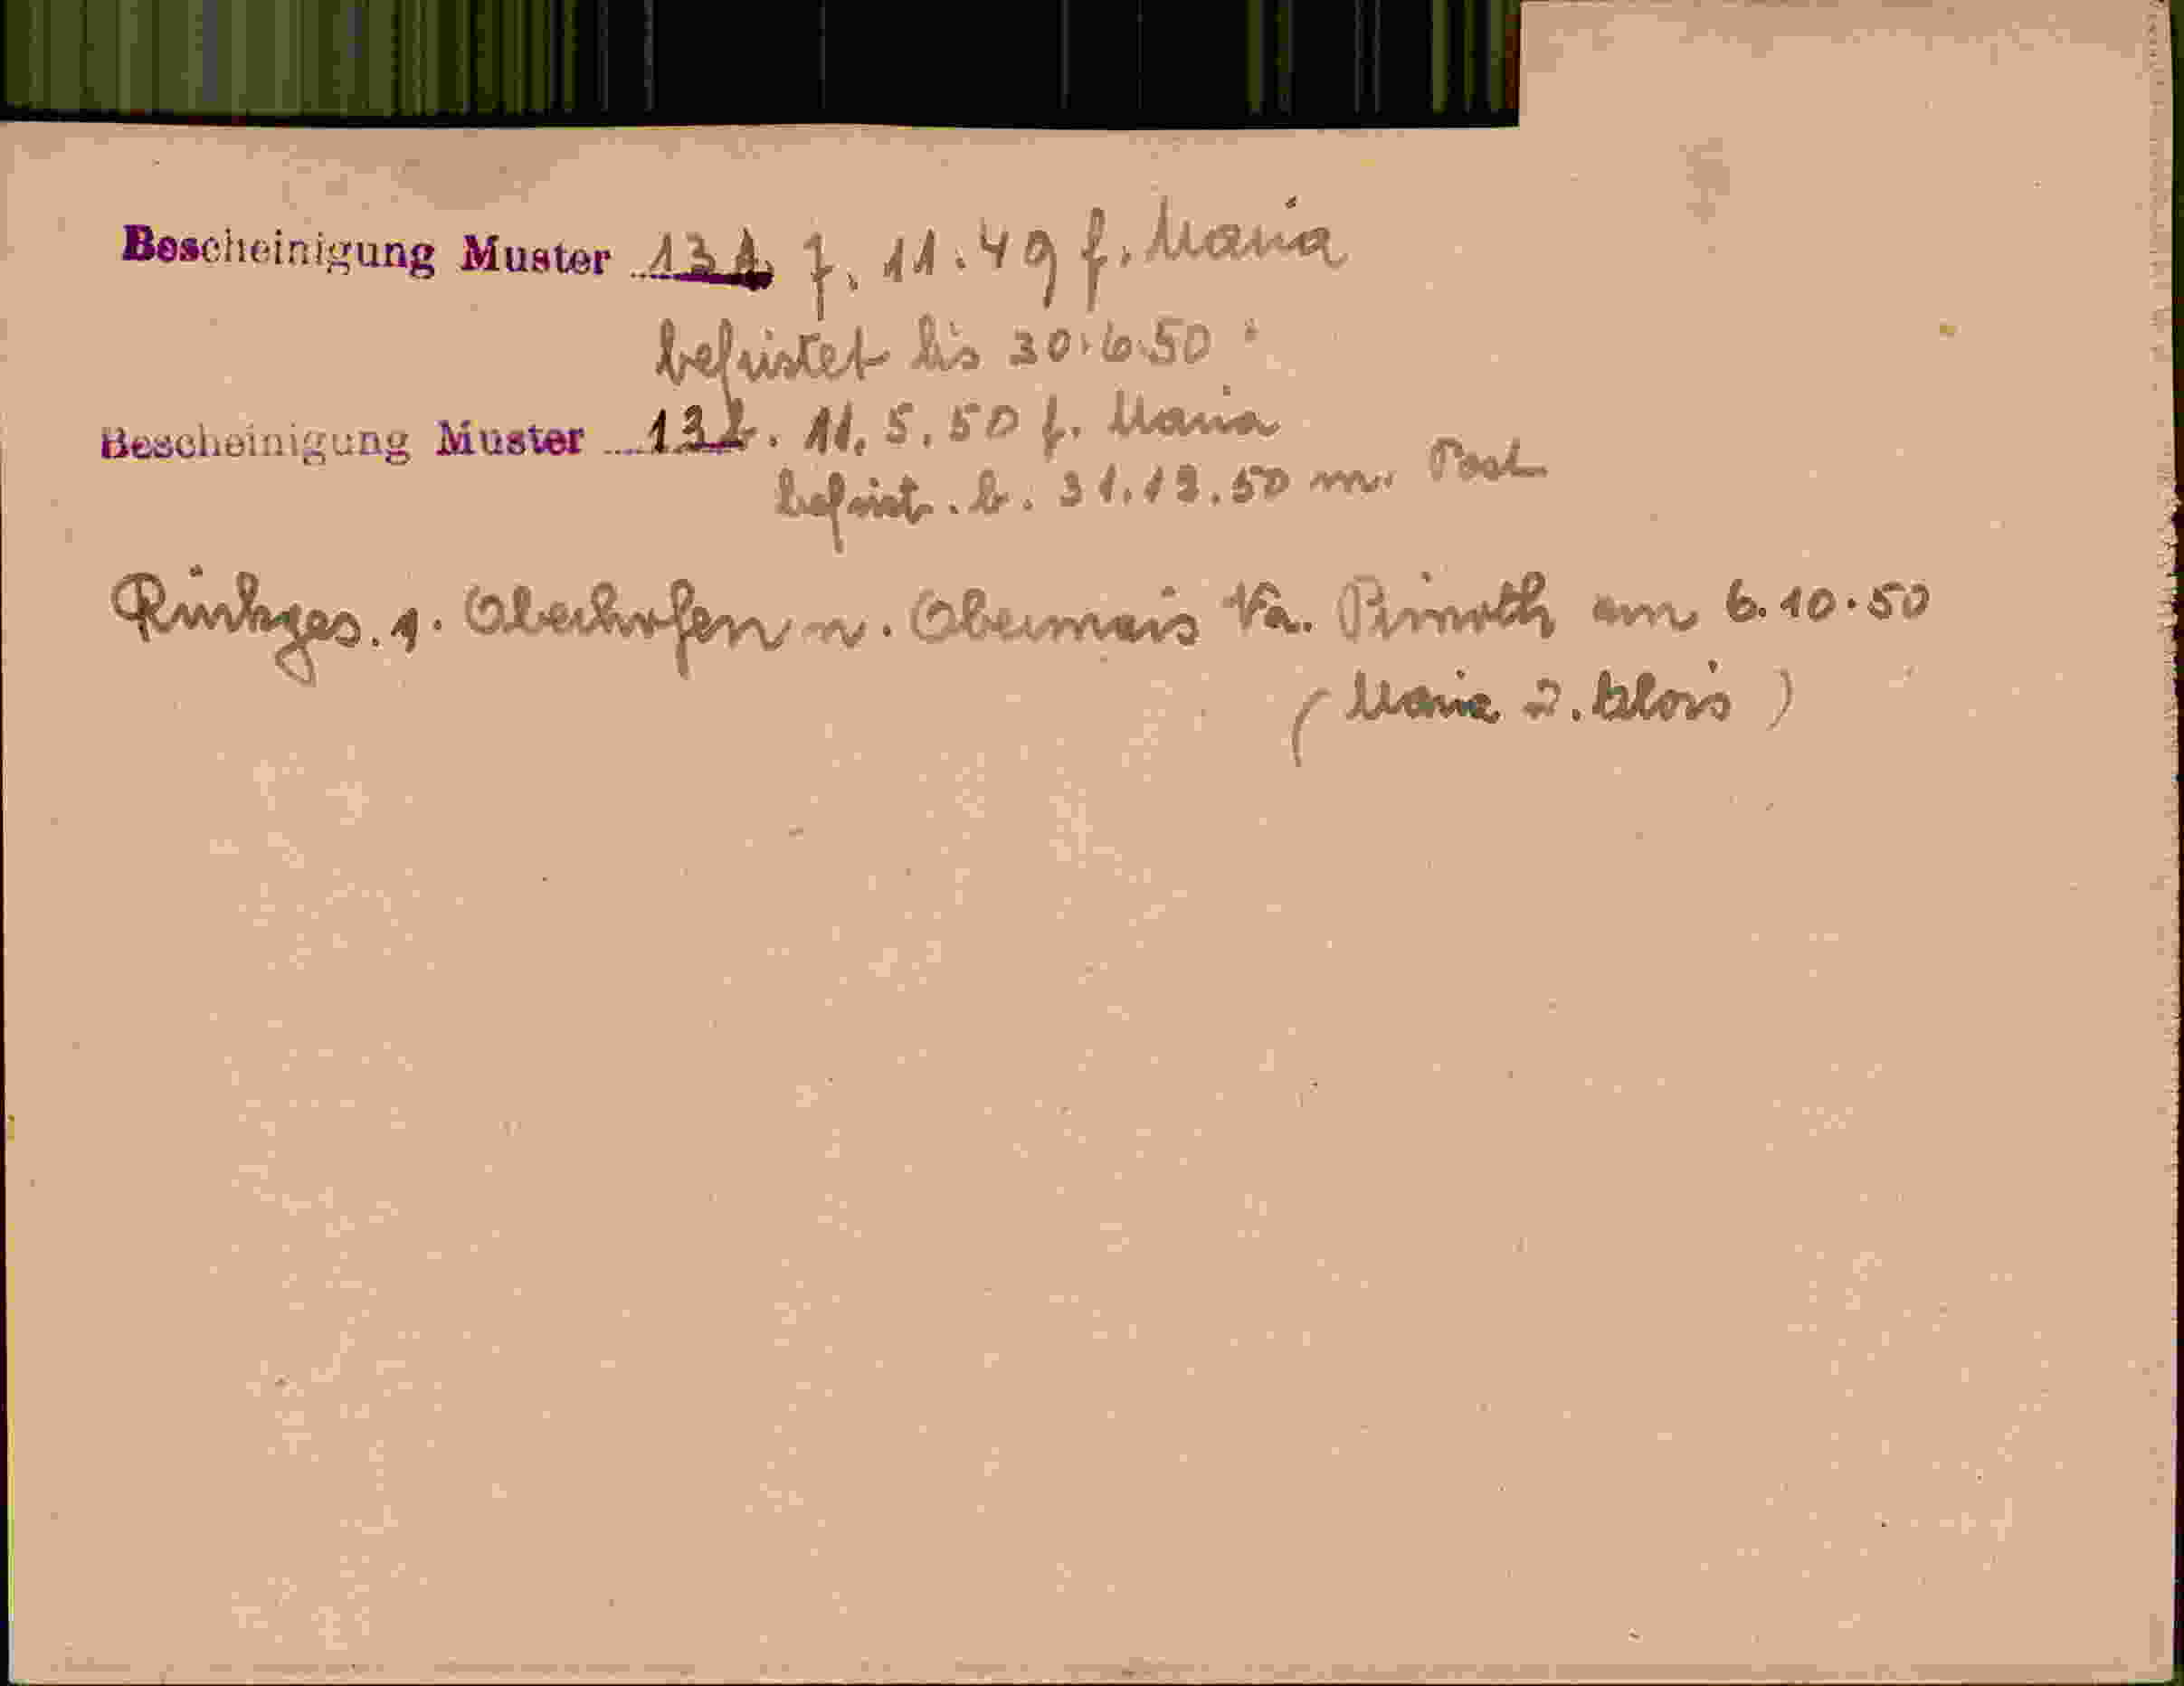 Bescheinigung Muster 131. 7. 11. 49 f. Maria
befristet bis 30.6.50
Bescheinigung Muster 132. 11. 5. 50 f. Maria
befrist. b. 31.12.50 m. Post
Rückges. v. Oberhofen n. Obermais Va. am 6.10.50
(Maria 2. Alois)